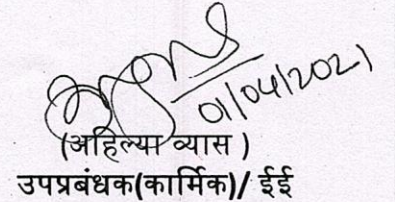 01/04/2021
(अहिल्या व्यास )
उपप्रबंधक(कार्मिक)/ ईई